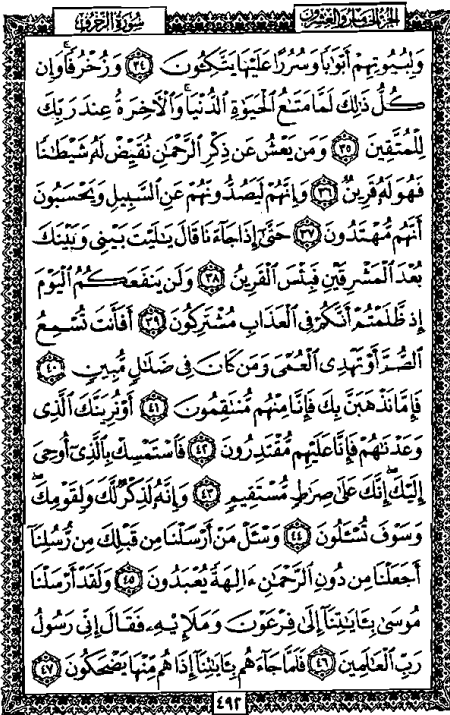 الجزء الخامس والعشرون
سورة الزخرف
وَلِبُيُوتِهِمْ أَبْوَٰبًا وَسُرُرًا عَلَيْهَا يَتَّكِـُٔونَ ٣٤ وَزُخْرُفًا ۚ وَإِن
كُلُّ ذَٰلِكَ لَمَّا مَتَٰعُ ٱلْحَيَوٰةِ ٱلدُّنْيَا ۚ وَٱلْـَٔاخِرَةُ عِندَ رَبِّكَ
لِلْمُتَّقِينَ ٣٥ وَمَن يَعْشُ عَن ذِكْرِ ٱلرَّحْمَٰنِ نُقَيِّضْ لَهُۥ شَيْطَٰنًا
فَهُوَ لَهُۥ قَرِينٌ ٣٦ وَإِنَّهُمْ لَيَصُدُّونَهُمْ عَنِ ٱلسَّبِيلِ وَيَحْسَبُونَ
أَنَّهُم مُّهْتَدُونَ ٣٧ حَتَّىٰٓ إِذَا جَآءَنَا قَالَ يَٰلَيْتَ بَيْنِى وَبَيْنَكَ
بُعْدَ ٱلْمَشْرِقَيْنِ فَبِئْسَ ٱلْقَرِينُ ٣٨ وَلَن يَنفَعَكُمُ ٱلْيَوْمَ
إِذ ظَّلَمْتُمْ أَنَّكُمْ فِى ٱلْعَذَابِ مُشْتَرِكُونَ ٣٩ أَفَأَنتَ تُسْمِعُ
ٱلصُّمَّ أَوْ تَهْدِى ٱلْعُمْىَ وَمَن كَانَ فِى ضَلَٰلٍ مُّبِينٍ ٤٠
فَإِمَّا نَذْهَبَنَّ بِكَ فَإِنَّا مِنْهُم مُّنتَقِمُونَ ٤١ أَوْ نُرِيَنَّكَ ٱلَّذِى
وَعَدْنَٰهُمْ فَإِنَّا عَلَيْهِم مُّقْتَدِرُونَ ٤٢ فَٱسْتَمْسِكْ بِٱلَّذِىٓ أُوحِىَ
إِلَيْكَ ۖ إِنَّكَ عَلَىٰ صِرَٰطٍ مُّسْتَقِيمٍ ٤٣ وَإِنَّهُۥ لَذِكْرٌ لَّكَ وَلِقَوْمِكَ ۖ
وَسَوْفَ تُسْـَٔلُونَ ٤٤ وَسْـَٔلْ مَنْ أَرْسَلْنَا مِن قَبْلِكَ مِن رُّسُلِنَآ
أَجَعَلْنَا مِن دُونِ ٱلرَّحْمَٰنِ ءَالِهَةً يُعْبَدُونَ ٤٥ وَلَقَدْ أَرْسَلْنَا
مُوسَىٰ بِـَٔايَٰتِنَآ إِلَىٰ فِرْعَوْنَ وَمَلَإِي۟هِۦ فَقَالَ إِنِّى رَسُولُ
رَبِّ ٱلْعَٰلَمِينَ ٤٦ فَلَمَّا جَآءَهُم بِـَٔايَٰتِنَآ إِذَا هُم مِّنْهَا يَضْحَكُونَ ٤٧
٤٩٢